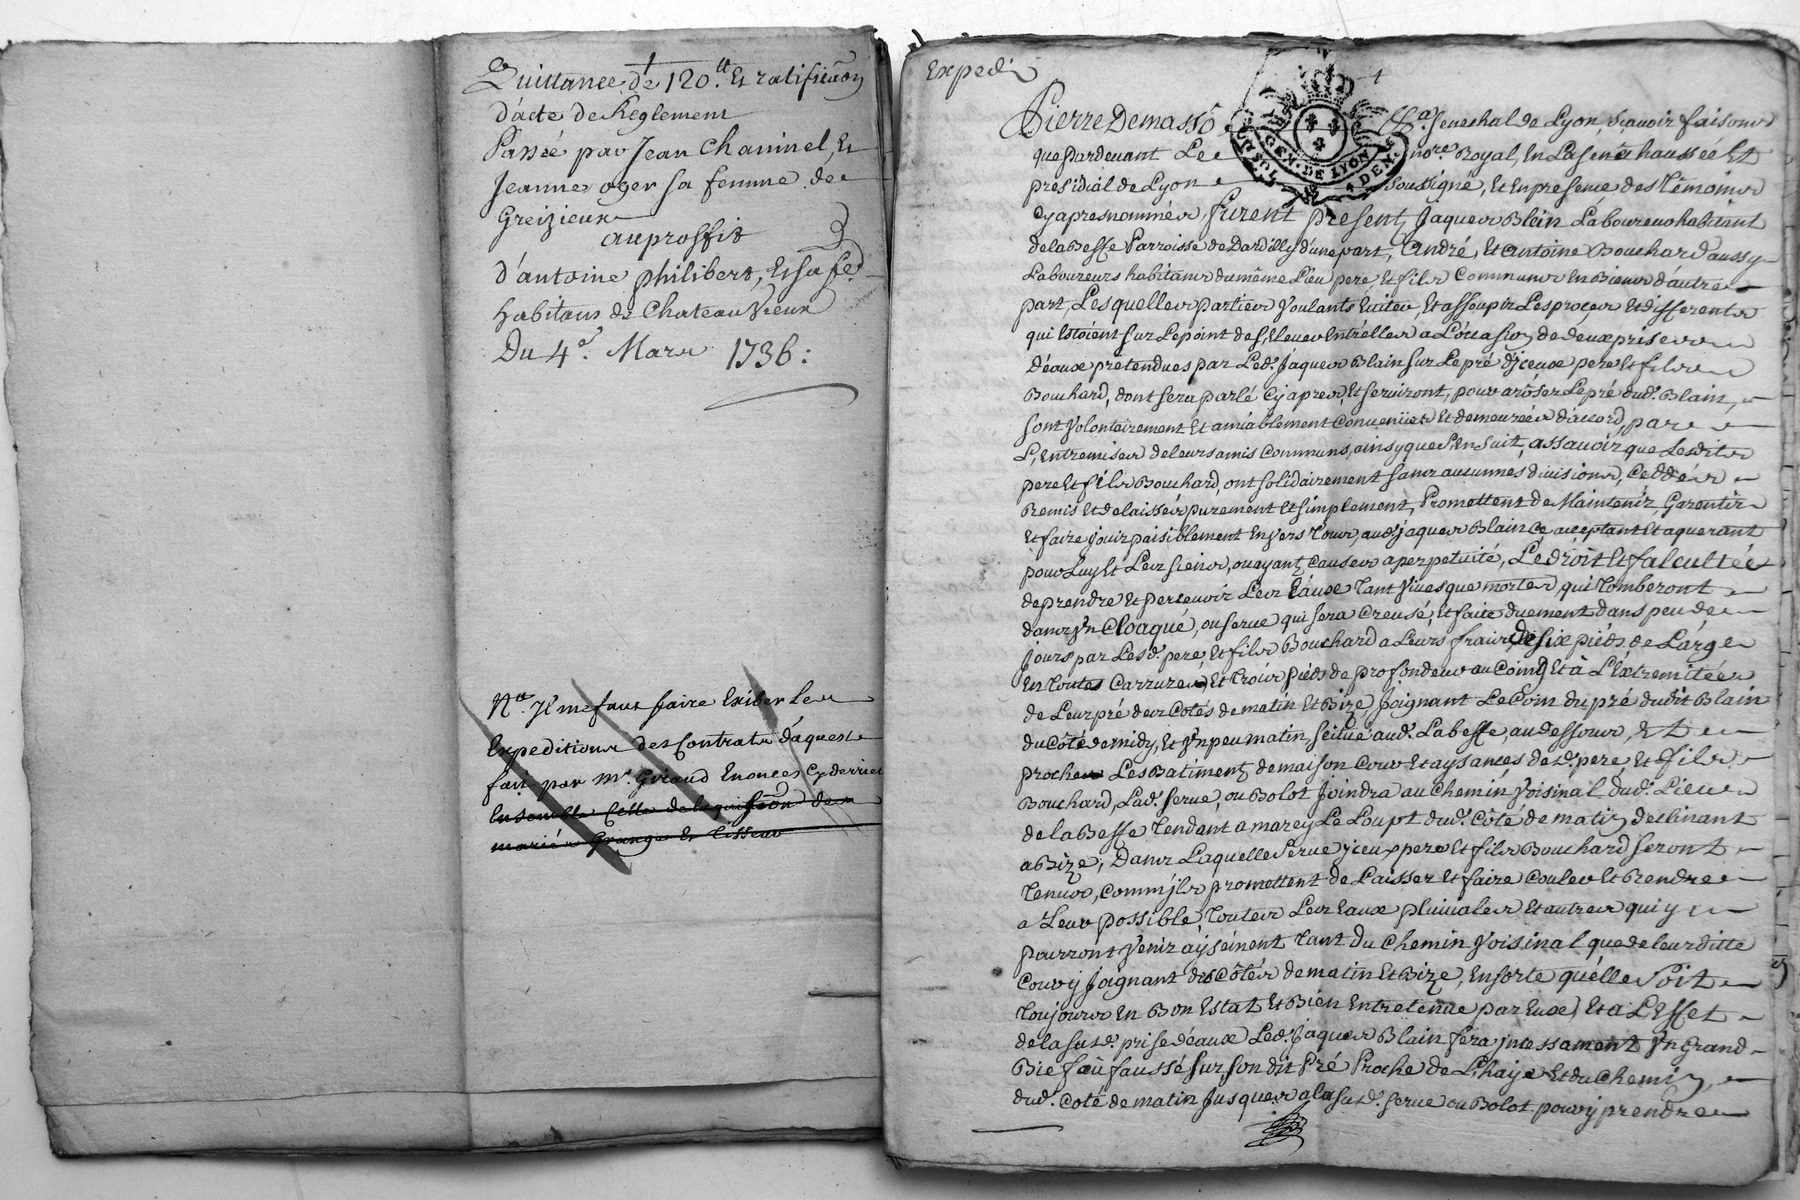 Quittance de 120.ᵗᵗ Et ratification
d'acte de Reglement
Passée par Jean Chaninel, Et
Jeanne oger sa femme de
Greizieux
au proffit
d'antoine philibert, Et sa fe.
habitans de Chateau Vieux
Du 4ᵉ. Mars 1736:
Nᵃ. Jl me faut faire Exiber les
Expeditions des Contrats d'aquest
fait par Mʳ. Giraud Enoncés Cy derrier
Ensemble Celle de la qui des
mariés Grange Et Tisseur
Exped.
Pierre Demasso Senechal de Lyon, Sçavoir faisons
que Pardevant Le noʳᵉ. Royal, En La senechaussée Et
presidial de Lyon soussigné, Et En presence des Témoins
Cy apres nommés furent present, Jaques Blain Laboureur habitant
de la Besse Parroisse de Dardilly d'une part, André, Et antoine Bouchard aussy
Laboureurs habitans du même Lieu pere Et fils Communs En Biens d'autre
part, Lesquelles parties Voulants Eviter, Et assoupir Les procés Et differents
qui Estoient sur Le point de s'Elever Entr'elles a L'occasion de deux prises
d'eaux prétendues par Led. Jaques Blain sur Le pré d'jceux pere Et fils
Bouchard, dont sera parlé Cy apres, Et serviront, pour arôser Le pré dud. Blain,
sont Volontairement Et amiablement Convenües Et demeurées d'accord, par
L'Entremise de leurs amis Communs, ainsy que s'En suit, assavoir que Lesdits
pere Et fils Bouchard, ont solidairement sans aucunnes divisions, Ceddés
Remis Et delaissés purement Et simplement, Promettent de Maintenir Garentir
Et faire jouir paisiblement Envers Tous, aud. jaques Blain Ce acceptant Et aquerant
pour Luy Et Les siens, ou ayant Causes a perpetuité, Le droit Et falcultée
de prendre Et percevoir Les Eaux Tant Vives que mortes, qui Tomberont
dans Vn Cloaque, ou serve qui sera Creusé, Et faite duement dans peu de
Jours par Lesd. pere, Et fils Bouchard a Leurs frais, De six pieds de Large
En Toutes Carrures, Et Trois pieds de profondeur au Coing Et à L'Extremitée
de Leur pré des Cotés de matin Et Bize, Joignant Le Coin du pré dudit Blain
du Côté de midy, Et Vn peu matin, scitué aud. La besse, au dessous, Et
proche Les Batiments de maison Cour Et aysances desd. pere, Et fils
Bouchard, Lad. serve, ou Bolot Joindra au Chemin Voisinal dud. Lieu
de la Besse Tendant a marcy Le Loupt dud. Côté de matin declinant
a Bize, Dans Laquelle Serve jceux pere Et fils Bouchard seront
Tenus, Comm'jls promettent de Laisser Et faire Couler Et Rendre
a Leur possible, Toutes Les Eaux pluviales Et autres qui y
pourront Venir aysément Tant du Chemin Voisinal que de leur ditte
Cour y Joignant des Côtés de matin Et Bize, En sorte qu'elle soit
Toujours En Bon Estat Et Bien Entretenüe par Eux, Et a L'Effet
de la susd. prise d'eaux Led. Jaques Blain fera jncessament Vn Grand
Bief ou faussé sur son dit Pré Proche de L'haye Et du Chemin,
dud. Coté de matin Jusques a la susd. serve ou Bolot pour y prendre